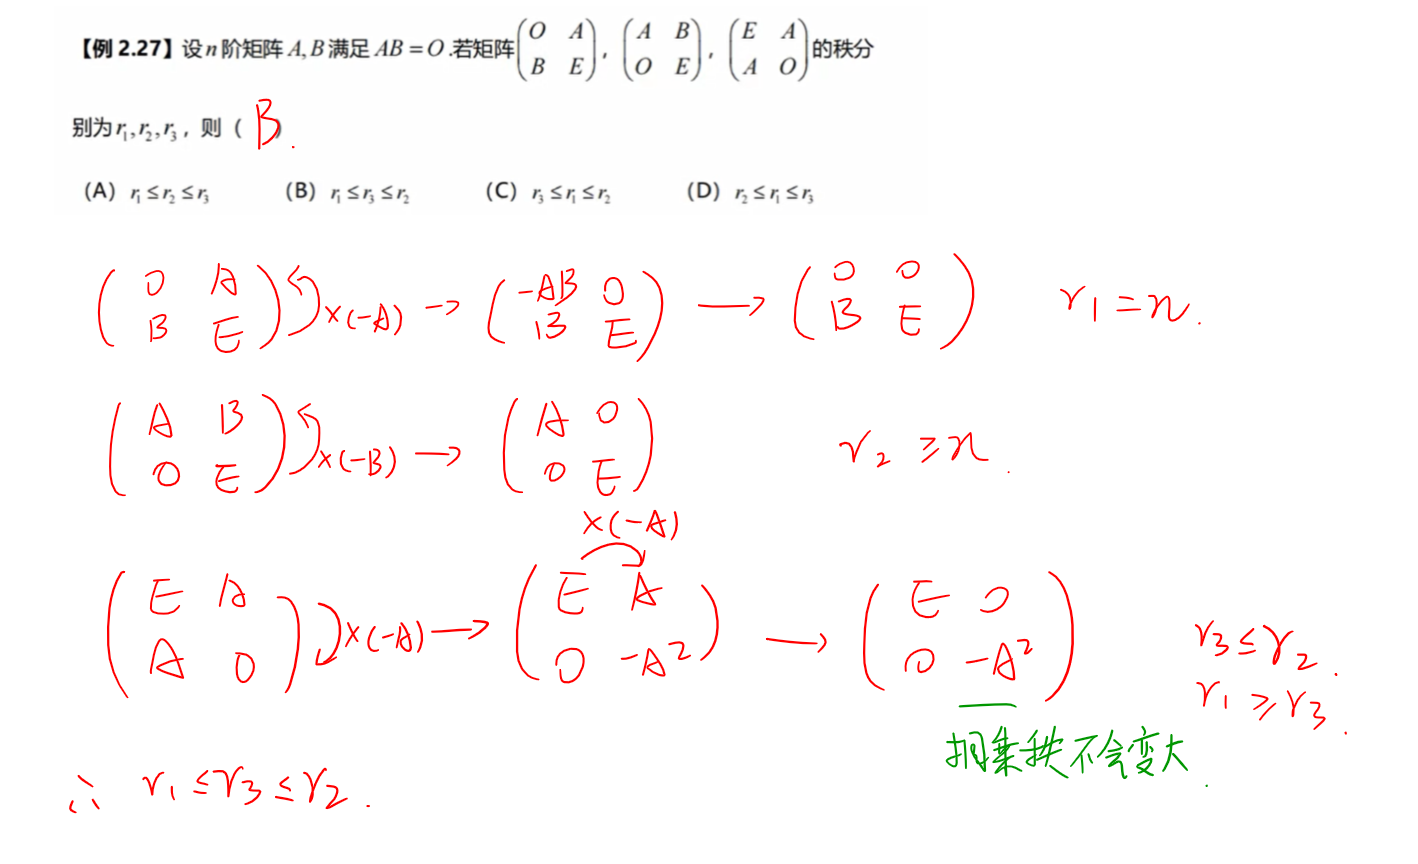 【例 2.27】设 n 阶矩阵 A, B 满足 AB = O .若矩阵 (O A; B E), (A B; O E), (E A; A O) 的秩分
别为 r₁, r₂, r₃，则（ B ）.
(A) r₁ ≤ r₂ ≤ r₃ (B) r₁ ≤ r₃ ≤ r₂ (C) r₃ ≤ r₁ ≤ r₂ (D) r₂ ≤ r₁ ≤ r₃
(O A; B E) ×(-A) → (-AB O; B E) → (O O; B E) r₁ = n.
(A B; O E) ×(-B) → (A O; O E) r₂ ≥ n.
×(-A)
(E A; A O) ×(-A) → (E A; O -A²) → (E O; O -A²) r₃ ≤ r₂.
r₁ ≥ r₃.
相乘秩不会变大.
∴ r₁ ≤ r₃ ≤ r₂.